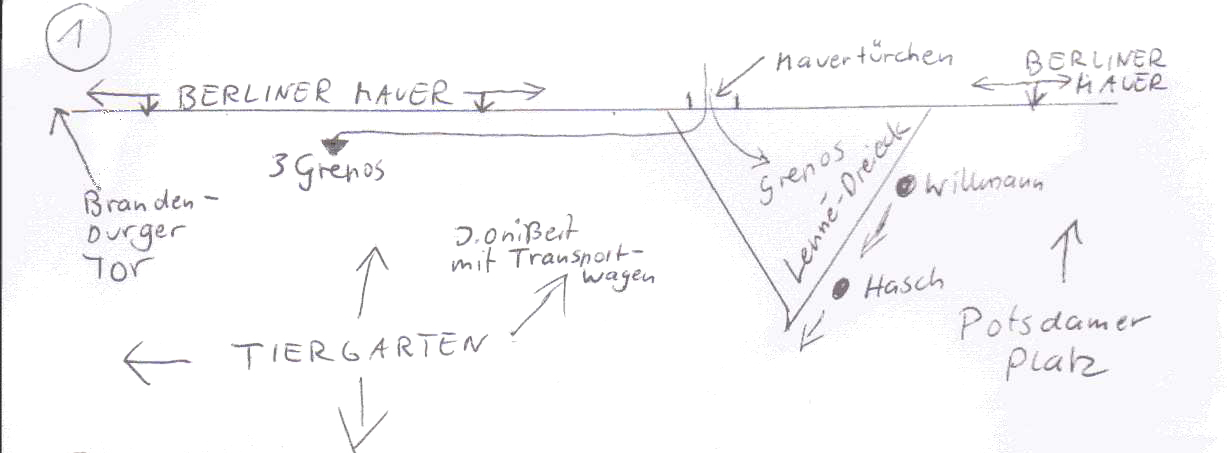 1
BERLINER MAUER
Mauertürchen
BERLINER
MAUER
3 Grenos
Grenos
Lenné-Dreieck
Willmann
Branden-
burger
Tor
mit Transport-
wagen
Hasch
TIERGARTEN
Potsdamer
Platz